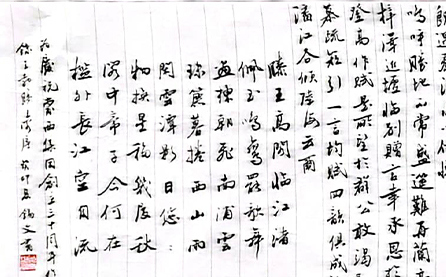 嗚呼勝地不常盛筵難再蘭亭
梓澤丘墟臨別贈言幸承恩於
登高作賦是所望於群公敢竭
恭疏短引一言均賦四韻俱成
潘江各傾陸海云爾
滕王高閣臨江渚
佩玉鳴鸞罷歌舞
畫棟朝飛南浦雲
珠簾暮捲西山雨
閑雲潭影日悠:
物換星移幾度秋
閣中帝子今何在
檻外長江空自流
為慶祝雲西集團創立三十周年